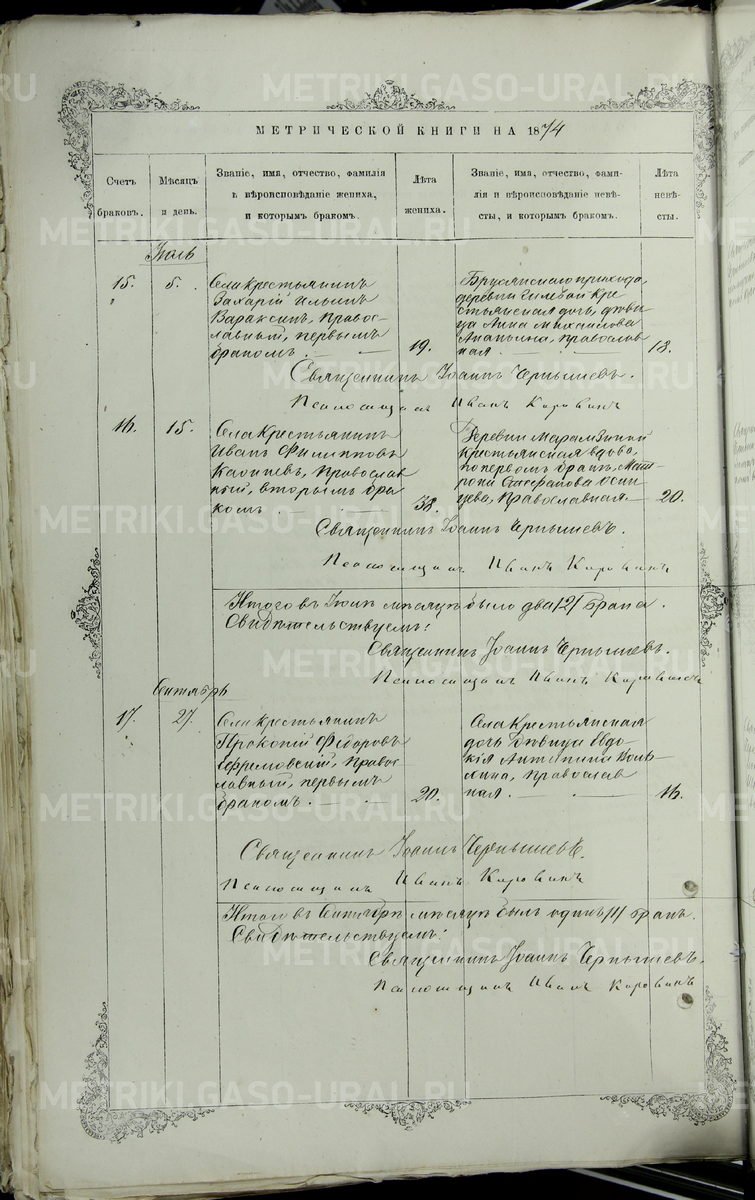 МЕТРИЧЕСКОЙ КНИГИ НА 1874
Счетъ браковъ.
Мѣсяцъ и день.
Званіе, имя, отчество, фамилія
и вѣроисповѣданіе жениха,
и которымъ бракомъ.
Лѣта жениха.
Званіе, имя, отчество, фами-
лія и вѣроисповѣданіе невѣ-
сты, и которымъ бракомъ.
Лѣта невѣ-
сты.
Іюль
15. 5.
Села крестьянинъ
Захарій Ильинъ
Вараксинъ, Правос-
лавный, первымъ
бракомъ. 19.
Бруснянскаго прихода,
деревни Гилевой кре
стьянская дочь, дѣви
ца Анна Михаилова
Ананьина, православ
ная. 18.
Священникъ Іоаннъ Чернышевъ.
Псаломщикъ Иванъ Коровинъ
16. 15.
Села крестьянинъ
Иванъ Филипповъ
Православ
ный, вторымъ бра
комъ. 38.
Деревни Марамзиной
крестьянская вдова,
по первомъ бракѣ, Мат-
рона Стефанова Осин
цева, Православная. 20.
Священникъ Іоаннъ Чернышевъ.
Псаломщикъ Иванъ Коровинъ
Итого въ Іюлѣ мѣсяцѣ было два /2/ брака.
Свидѣтельствуемъ:
Священникъ Іоаннъ Чернышевъ.
Псаломщикъ Иванъ Коровинъ
Сентябрь
17. 27.
Села крестьянинъ
Прокопій Ѳедоровъ
Ефремовскій, Правос
лавный, первымъ
бракомъ. 20.
Села крестьянская
дочь дѣвица Евдо-
кія Антипина
Православ
ная. 16.
Священникъ Іоаннъ Чернышевъ.
Псаломщикъ Иванъ Коровинъ
Итого въ Сентябрѣ мѣсяцѣ былъ одинъ /1/ бракъ.
Свидѣтельствуемъ:
Священникъ Іоаннъ Чернышевъ.
Псаломщикъ Иванъ Коровинъ
METRIKI.GASO-URAL.RU